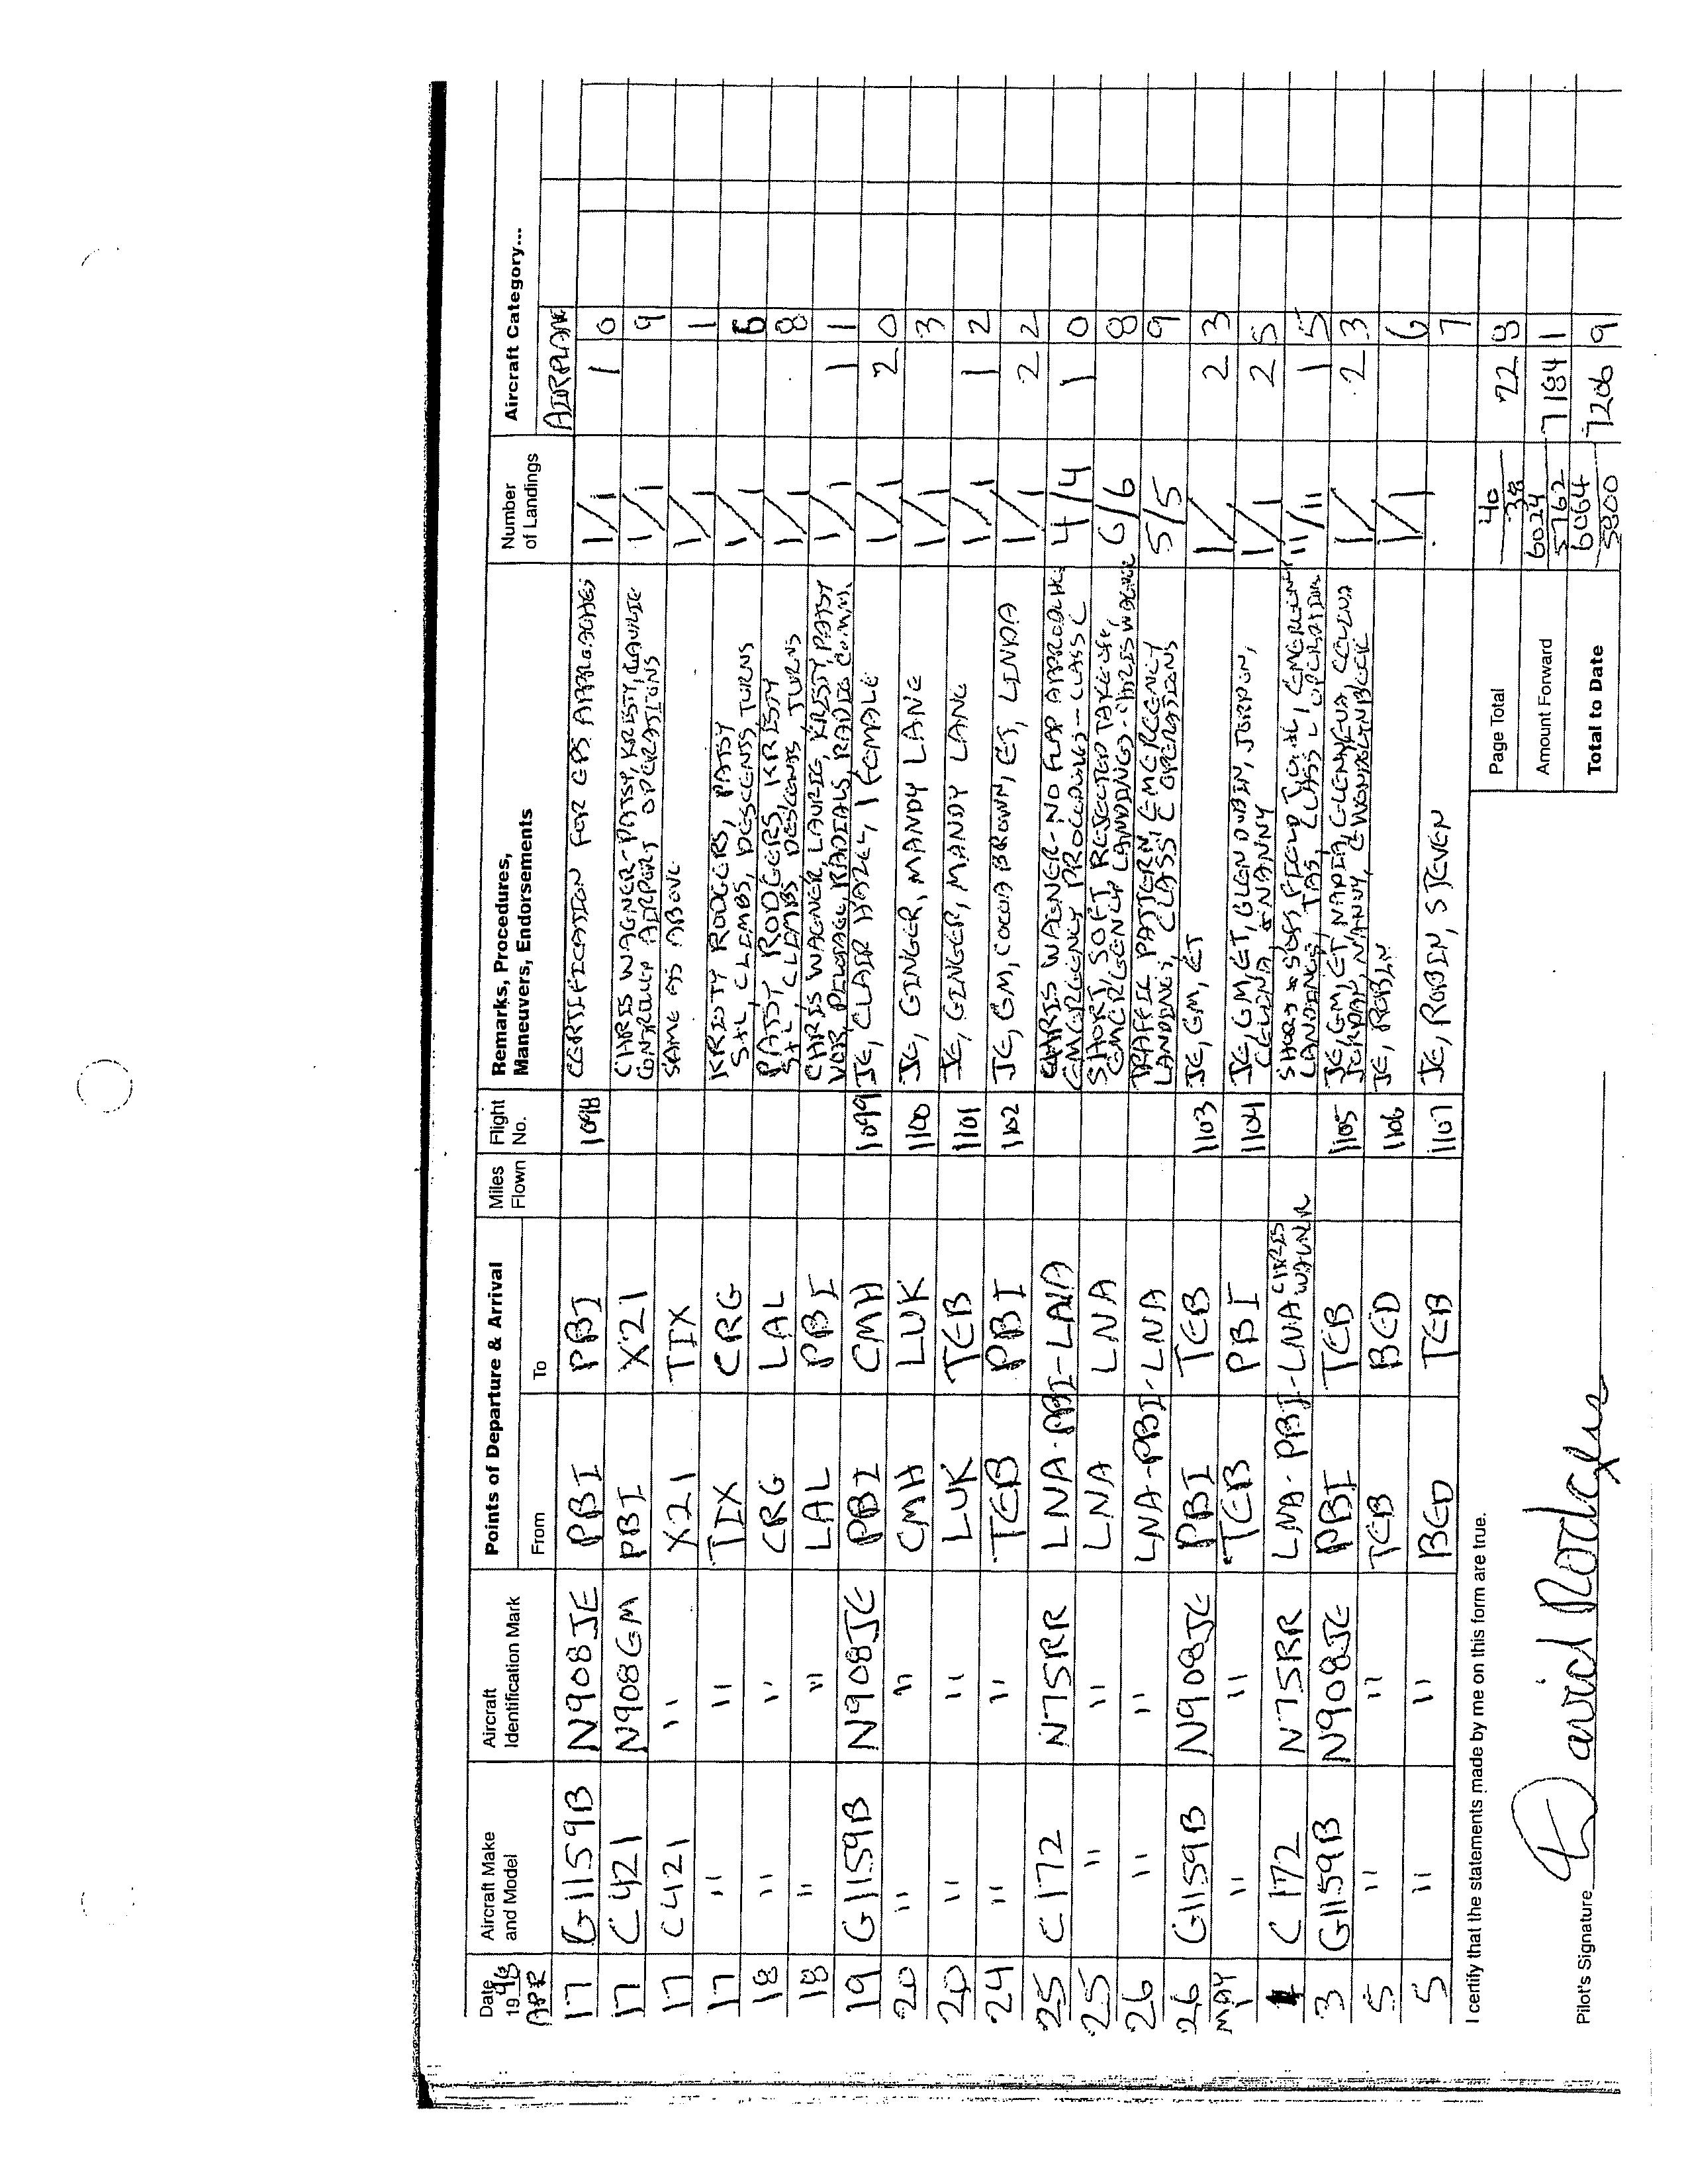 Date 19 98 Aircraft Make and Model Aircraft Identification Mark Points of Departure & Arrival From To Miles Flown Flight No. Remarks, Procedures, Maneuvers, Endorsements Number of Landings Aircraft Category...
APR AIRPLANE
17 G1159B N908JE PBI PBI 1098 CERTIFICATION FOR GPS APPROACHES 1/1 1 0
17 C421 N908GM PBI X21 CHRIS WAGNER-PATSY, KRISTY, LAURIE 1/1 9
CONTROLLED AIRPORT OPERATIONS
17 C421 " X21 TIX SAME AS ABOVE 1/1 1
17 " " TIX CRG KRISTY RODGERS, PATSY 1/1 6
S+L, CLIMBS, DESCENTS, TURNS
18 " " CRG LAL PATSY RODGERS, KRISTY 1/1 8
S+L, CLIMBS, DESCENTS, TURNS
18 " " LAL PBI CHRIS WAGNER, LAURIE, KRISTY, PATSY 1/1 1 1
VOR, PILOTAGE, RADIALS, RADIO COMM.
19 G1159B N908JE PBI CMH 1099 JE, CLAIR HAZEL, 1 FEMALE 1/1 2 0
20 " " CMH LUK 1100 JE, GINGER, MANDY LANE 1/1 3
20 " " LUK TEB 1101 JE, GINGER, MANDY LANE 1/1 1 2
24 " " TEB PBI 1102 JE, GM, COCOA BROWN, ET, LINDA 1/1 2 2
25 C172 N75RR LNA-PBI-LNA CHRIS WAGNER-NO FLAP APPROACHES 4/4 1 0
EMERGENCY PROCEDURES--CLASS C
25 " " LNA LNA SHORT, SOFT, REJECTED TAKEOFF, 6/6 8
EMERGENCY LANDINGS-CHRIS WAGNER
26 " " LNA-PBI-LNA TRAFFIC PATTERN EMERGENCY 5/5 9
LANDINGS, CLASS C OPERATIONS
26 G1159B N908JE PBI TEB 1103 JE, GM, ET 1/ 2 3
MAY
1 " " TEB PBI 1104 JE, GM, ET, GLEN DUBIN, JORDON, 1/1 2 5
CELINA, + NANNY
1 C172 N75RR LNA-PBI-LNA CHRIS WAGNER SHORT + SOFT FIELD T.O.+L, EMERGENCY 11/11 1 5
LANDINGS, CLASS C OPERATION
3 G1159B N908JE PBI TEB 1105 JE, GM, ET, NADIA, CELINA 1/ 2 3
JORDAN, NANNY,
5 " " TEB BED 1106 JE, ROBIN 1/1 6
5 " " BED TEB 1107 JE, ROBIN, STEVEN 7
I certify that the statements made by me on this form are true.
Page Total 40 38 22 8
Amount Forward 6024 5762 7184 1
Total to Date 6064 5800 7206 9
Pilot's Signature David Rodgers